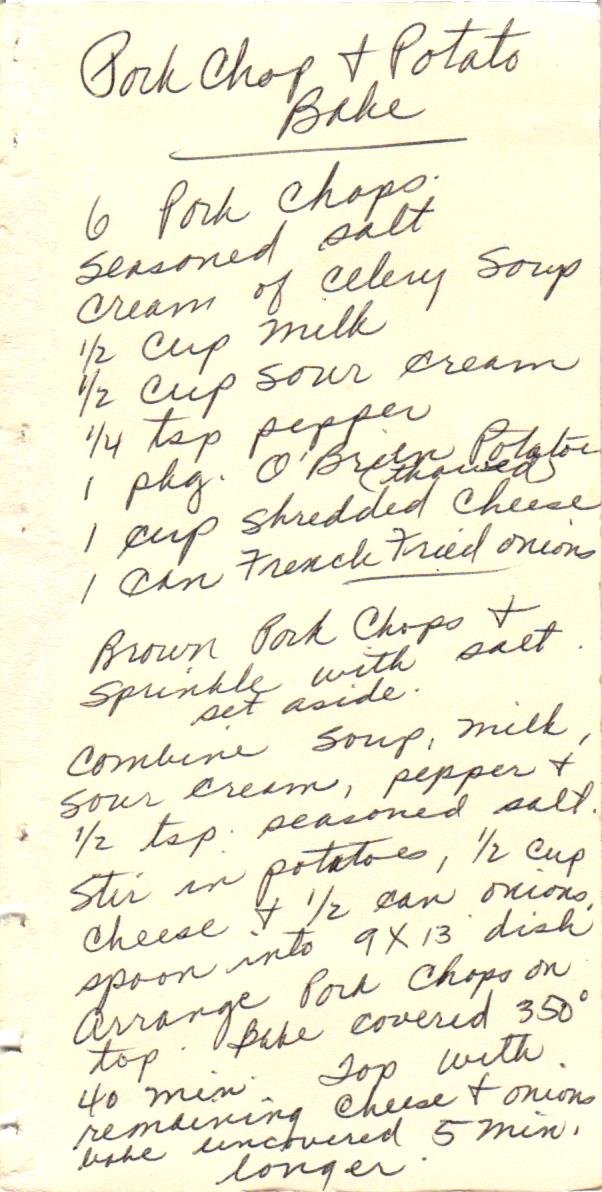 Pork Chop & Potato
Bake
6 Pork Chops.
Seasoned salt
Cream of Celery Soup
1/2 cup milk
1/2 cup sour cream
1/4 tsp pepper
1 pkg. O'Brien Potatoe
(thawed)
1 cup shredded cheese
1 can French Fried onions
Brown Pork Chops &
Sprinkle with salt.
set aside.
Combine soup, milk,
sour cream, pepper &
1/2 tsp. seasoned salt.
Stir in potatoes, 1/2 cup
cheese & 1/2 can onions,
spoon into 9X13 dish
Arrange Pork Chops on
top. Bake covered 350°
40 min. Top with
remaining cheese & onions
bake uncovered 5 min.
longer.